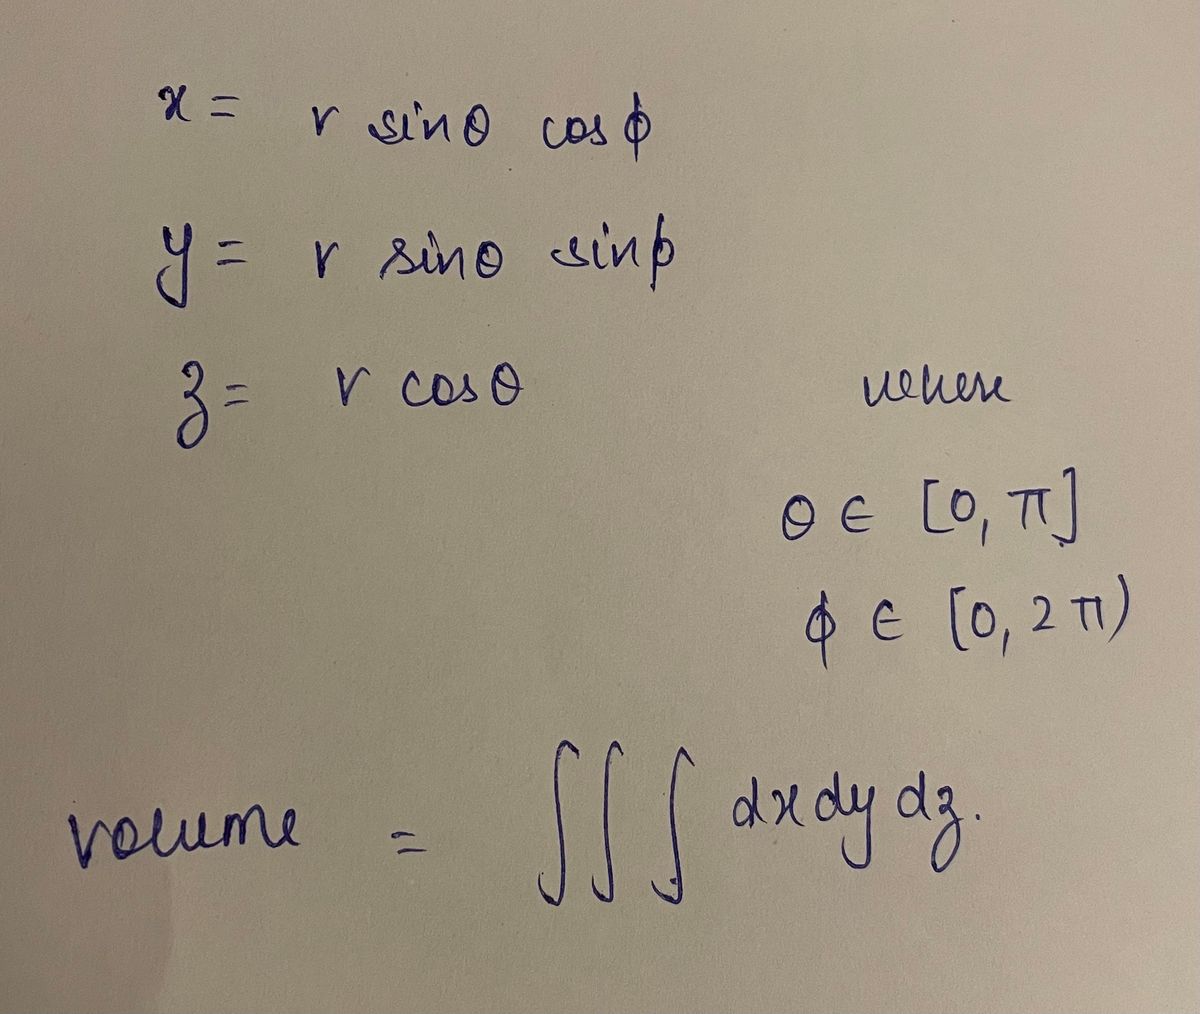 x = r sinθ cos ϕ
y = r sinθ sinϕ
z = r cosθ
where
θ ∈ [0, π]
ϕ ∈ [0, 2π)
volume = ∫∫∫ dx dy dz.